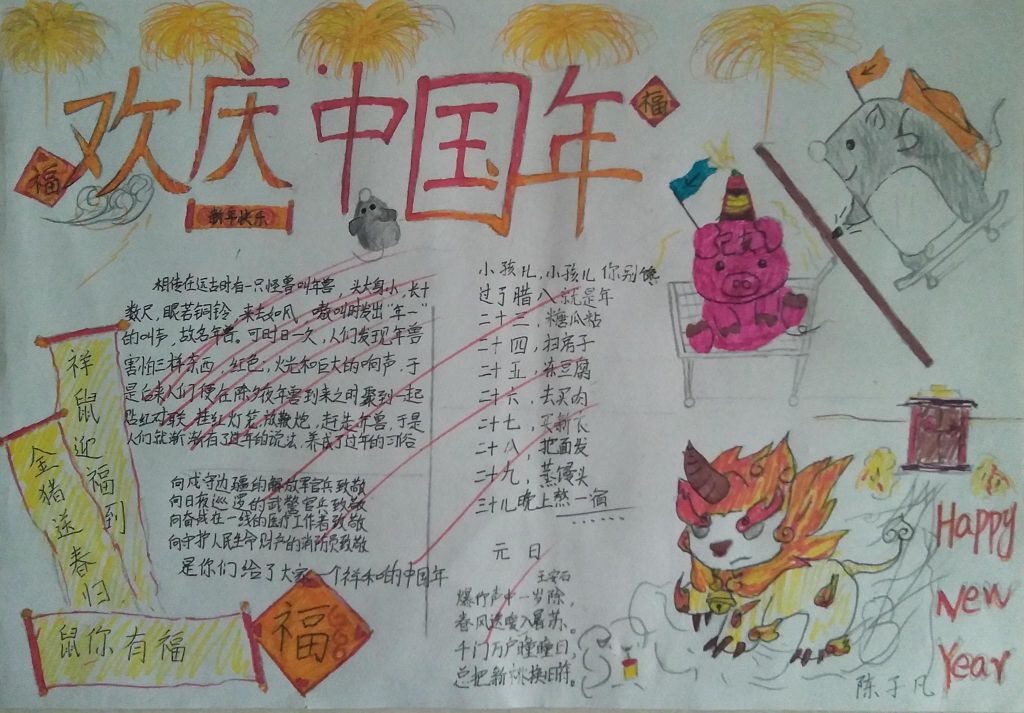 欢庆中国年
福
福
新年快乐
相传在远古时有一只怪兽叫年兽，头大身小，长十
数尺，眼若铜铃，来去如风，嗷叫时发出"年一"
的叫声，故名年兽。可时日一久，人们发现年兽
害怕三样东西，红色，火光和巨大的响声，于
是后来人们便在除夕夜年兽到来之时聚到一起
贴红对联、挂红灯笼、放鞭炮，赶走年兽，于是
人们就渐渐有了过年的说法，养成了过年的习俗
向戍守边疆的解放军官兵致敬
向日夜巡逻的武警官兵致敬
向奋战在一线的医疗工作者致敬
向守护人民生命财产的消防员致敬
是你们给了大家一个祥和的中国年
小孩儿，小孩儿你别馋
过了腊八就是年
二十三，糖瓜粘
二十四，扫房子
二十五，冻豆腐
二十六，去买肉
二十七，宰
二十八，把面发
二十九，蒸馒头
三十儿晚上熬一宿
......
元日
王安石
爆竹声中一岁除，
春风送暖入屠苏。
千门万户曈曈日，
总把新桃换旧符。
祥鼠迎福到
金猪送春归
鼠你有福
福
Happy
New
Year
陈于凡